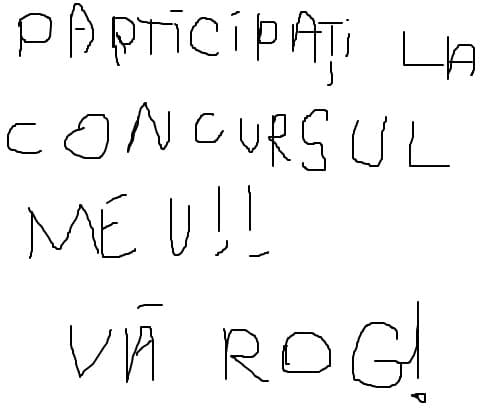 PARTICIPAȚI LA
CONCURSUL
MEU!!
VĂ ROG!